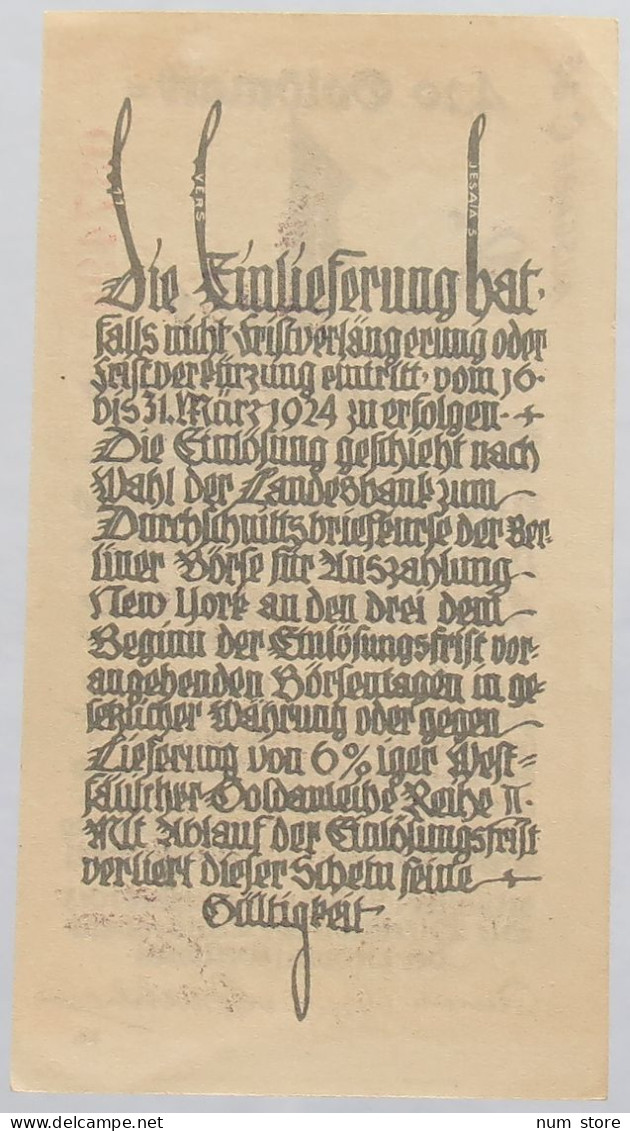 11 VERS JESAIA 5
Die Einlieferung hat,
falls nicht Fristverlängerung oder
Fristverkürzung eintritt, vom 16.
bis 31. März 1924 zu erfolgen.
Die Einlösung geschieht nach
Wahl der Landesbank zum
Durchschnittsbriefkurse der Ber-
liner Börse für Auszahlung
New York an den drei dem
Beginn der Einlösungsfrist vor-
angehenden Börsentagen in ge-
setzlicher Währung oder gegen
Lieferung von 6%iger West-
fälischer Goldanleihe Reihe II.
Mit Ablauf der Einlösungsfrist
verliert dieser Schein seine
Gültigkeit
num store